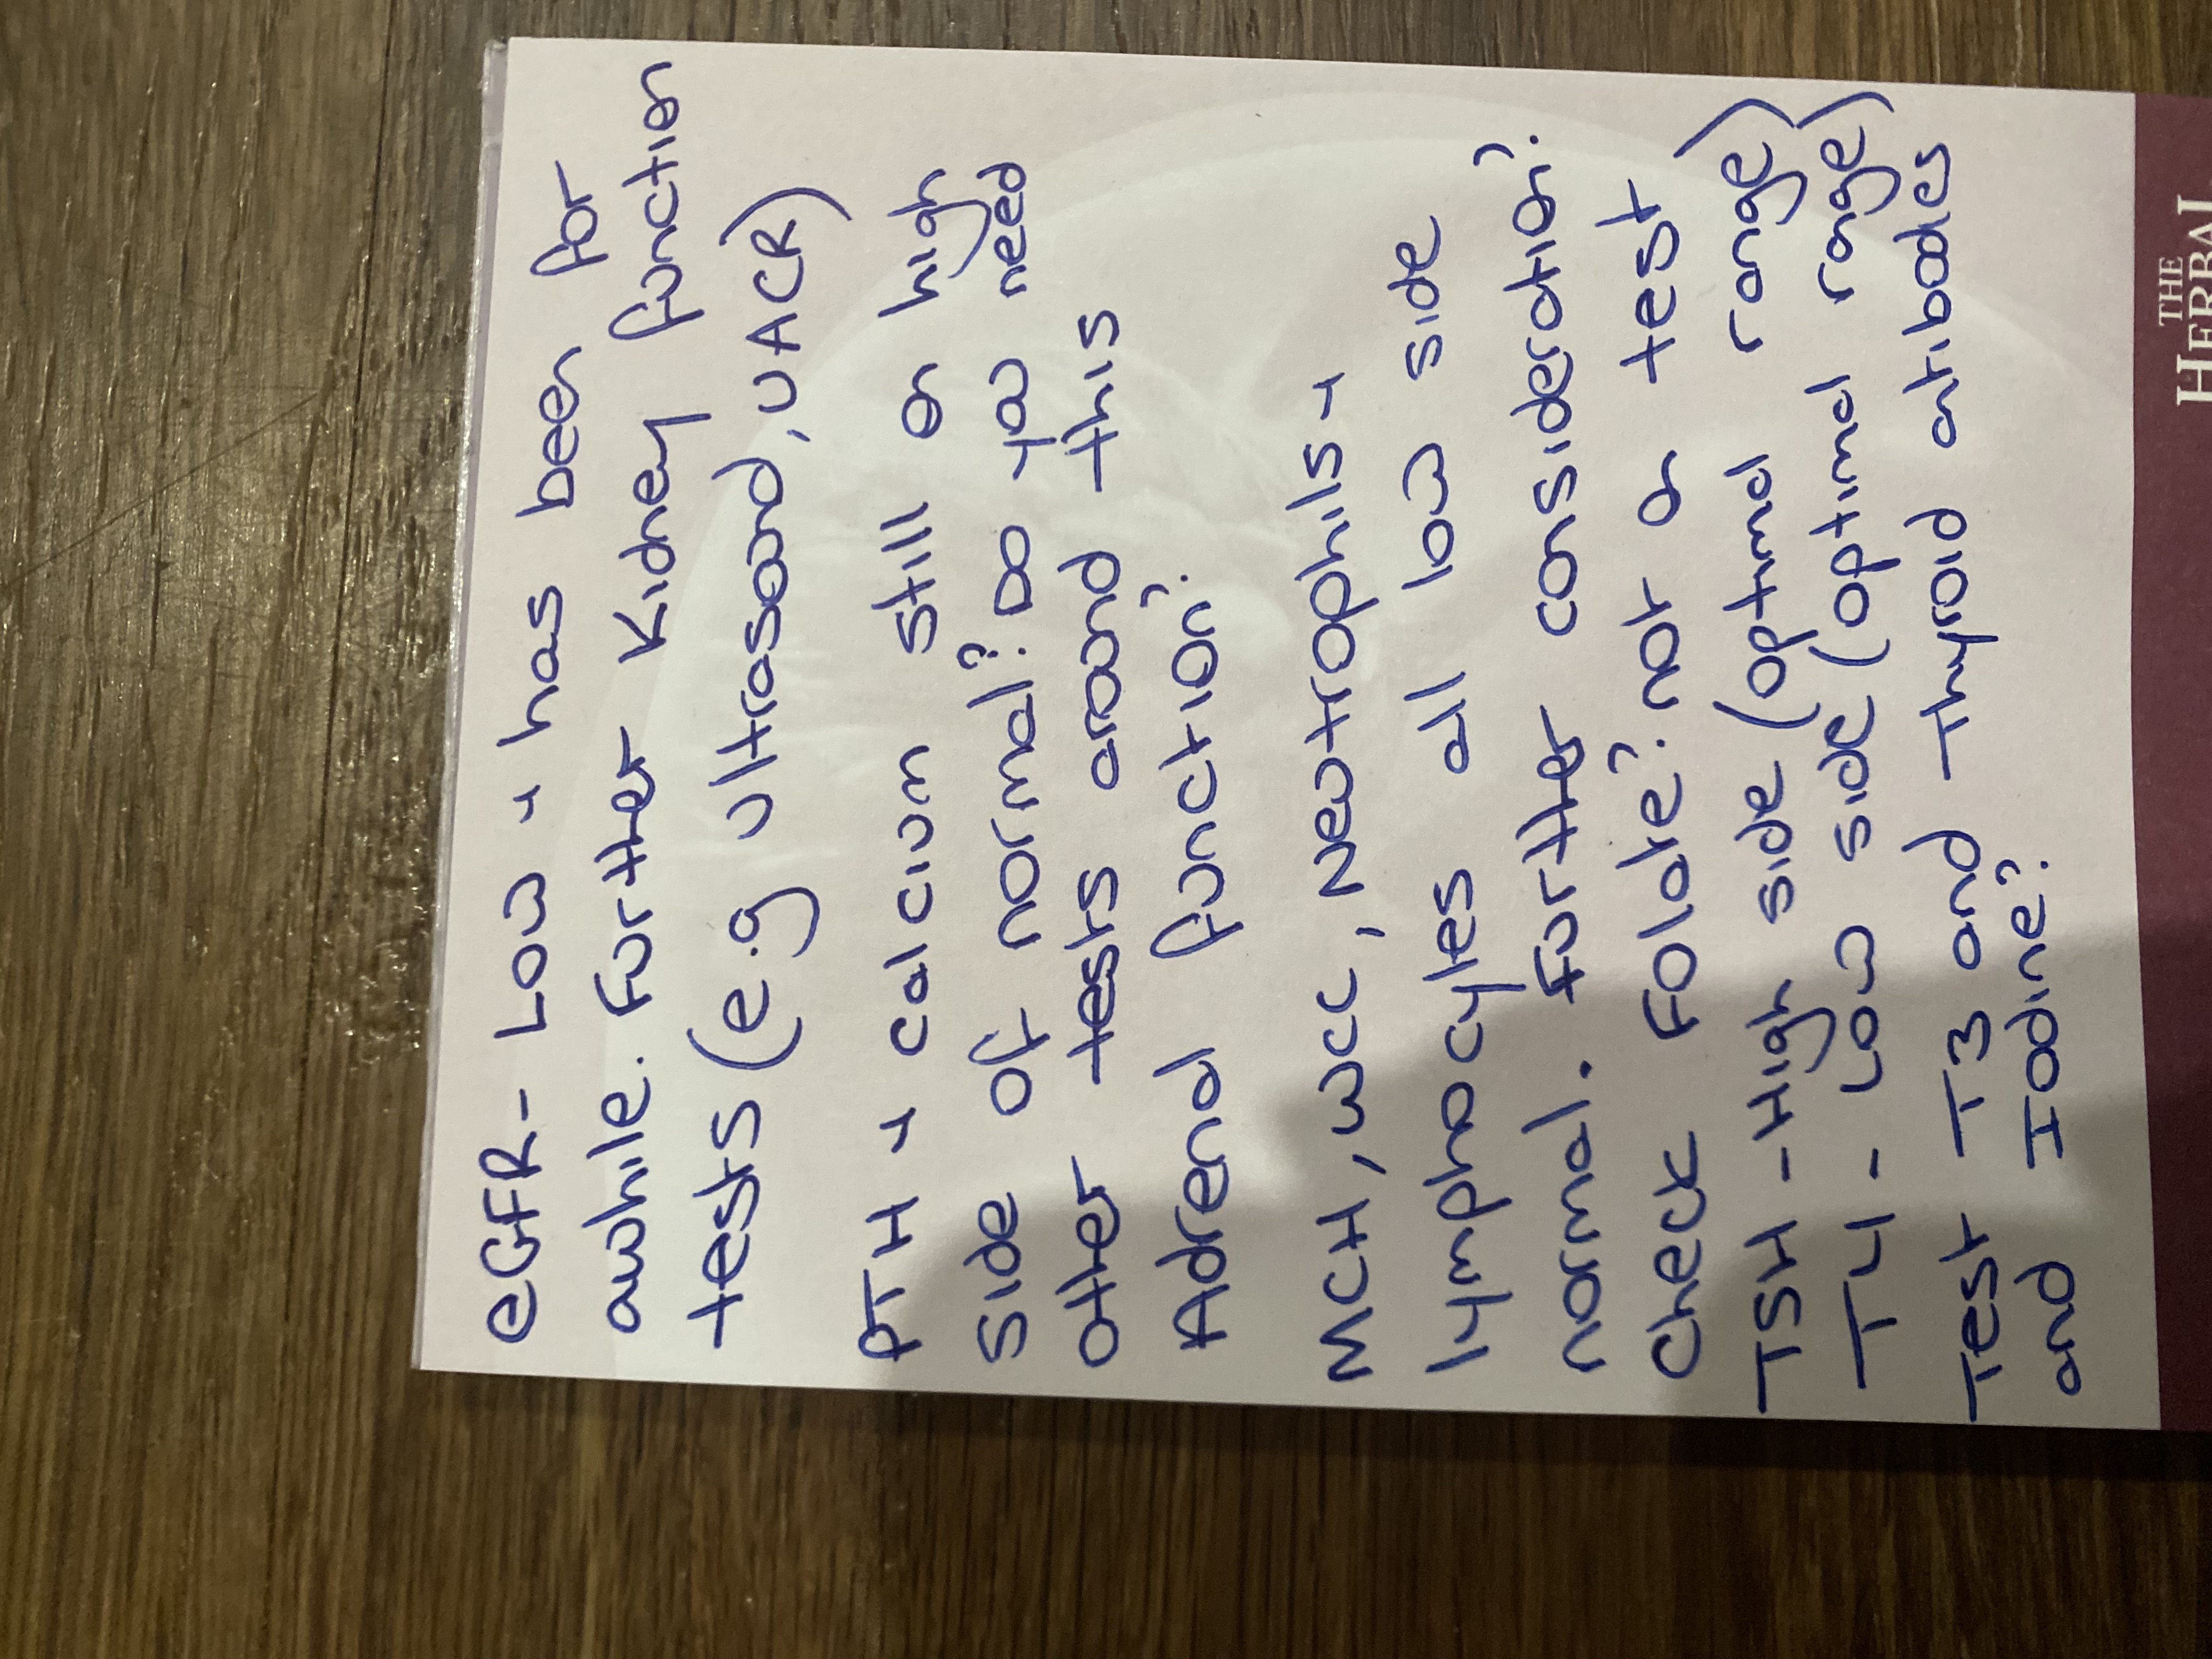 eGFR- Low + has been for
awhile. Further Kidney function
tests (e.g ultrasound, UACR)
PTH + calcium still on high
side of normal? Do you need
other tests around this
Adrenal function?
MCH, WCC, Neutrophils +
lymphocytes all low side
normal. Further consideration?
Check Folate? not on test
TSH - High side (optimal range)
T4 - Low side (optimal range)
Test T3 and Thyroid antibodies
and Iodine?
THE
HERBAL